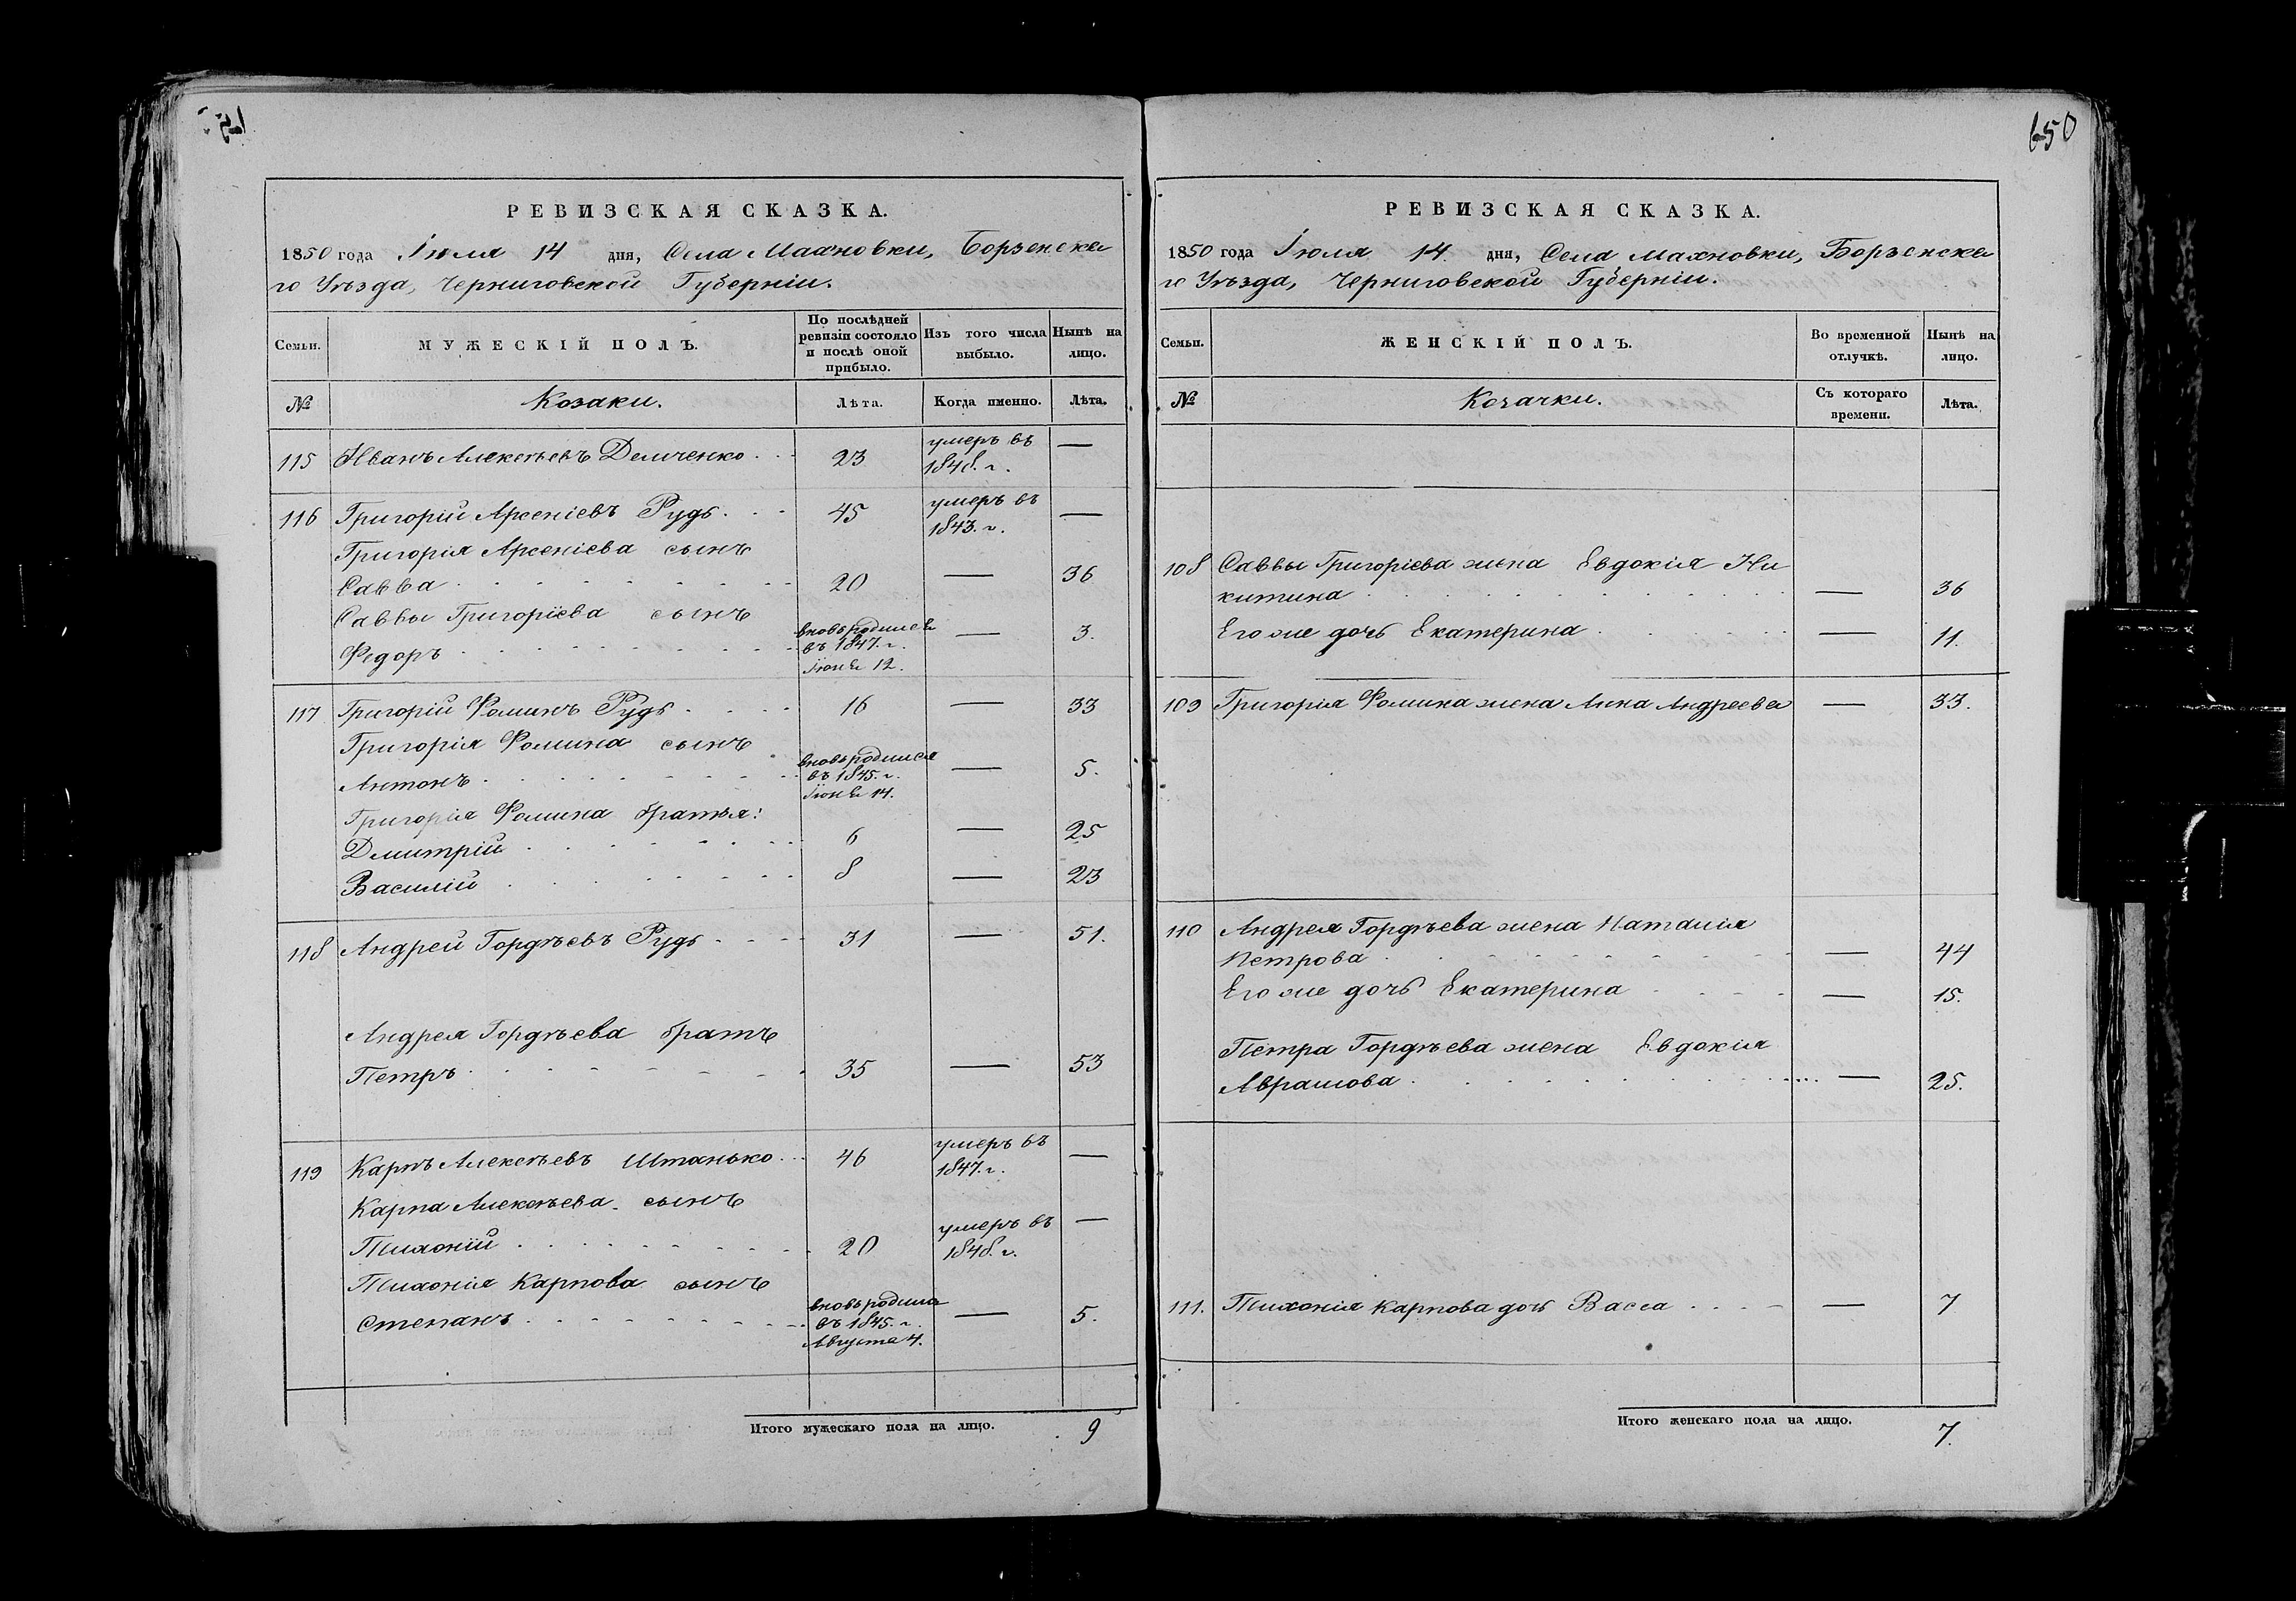 650
РЕВИЗСКАЯ СКАЗКА.
1850 года Іюля 14 дня, Села Махновки, Борзенска
го Уѣзда, Черниговской Губерніи.
Семьи.
МУЖЕСКІЙ ПОЛЪ.
По послѣдней ревизіи состояло и послѣ оной прибыло.
Изъ того числа выбыло.
Нынѣ на лицо.
№
Козаки.
Лѣта.
Когда именно.
Лѣта.
115 Иванъ Алексѣевъ Демченко 23 умеръ въ 1848. г. —
116 Григорій Арсеніевъ Рудь 45 умеръ въ 1843. г. —
Григорія Арсеніева сынъ
Савва 20 — 36
Саввы Григоріева сынъ
Федоръ вновь родился въ 1847. г. Іюня 12. — 3.
117 Григорій Фоминъ Рудь 16 — 33
Григорія Фомина сынъ
Антонъ вновь родился въ 1845. г. Іюня 14. — 5.
Григорія Фомина братья:
Дмитрій 6 — 25
Василій 8 — 23
118 Андрей Гордѣевъ Рудь 31 — 51.
Андрея Гордѣева братъ
Петръ 35 — 53
119 Карпъ Алексѣевъ Штанько 46 умеръ въ 1847. г. —
Карпа Алексѣева сынъ
Тихоній 20 умеръ въ 1848. г. —
Тихонія Карпова сынъ
Степанъ вновь родился въ 1845. г. Августа 4. — 5.
Итого мужескаго пола на лицо. 9
РЕВИЗСКАЯ СКАЗКА.
1850 года Іюля 14. дня, Села Махновки, Борзенска
го Уѣзда, Черниговской Губерніи.
Семьи.
ЖЕНСКІЙ ПОЛЪ.
Во временной отлучкѣ.
Нынѣ на лицо.
№
Козачки.
Съ котораго времени.
Лѣта.
108 Саввы Григоріева жена Евдокія Ни
китина — 36
Его же дочь Екатерина — 11.
109 Григорія Фомина жена Анна Андреева — 33.
110 Андрея Гордѣева жена Наталія
Петрова — 44
Его же дочь Екатерина — 15.
Петра Гордѣева жена Евдокія
Аврамова — 25.
111. Тихонія Карпова дочь Васса — 7
Итого женскаго пола на лицо. 7.